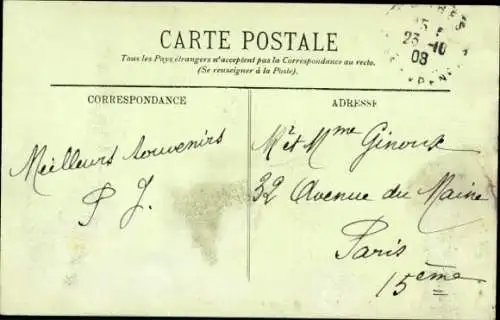 CARTE POSTALE
Tous les Pays étrangers n'acceptent pas la Correspondance au recto.
(Se renseigner à la Poste).
CORRESPONDANCE
ADRESSE
Meilleurs souvenirs
P J.
Mr et Mme Ginoux
32 Avenue du Maine
Paris
15ème
23 - 10
08